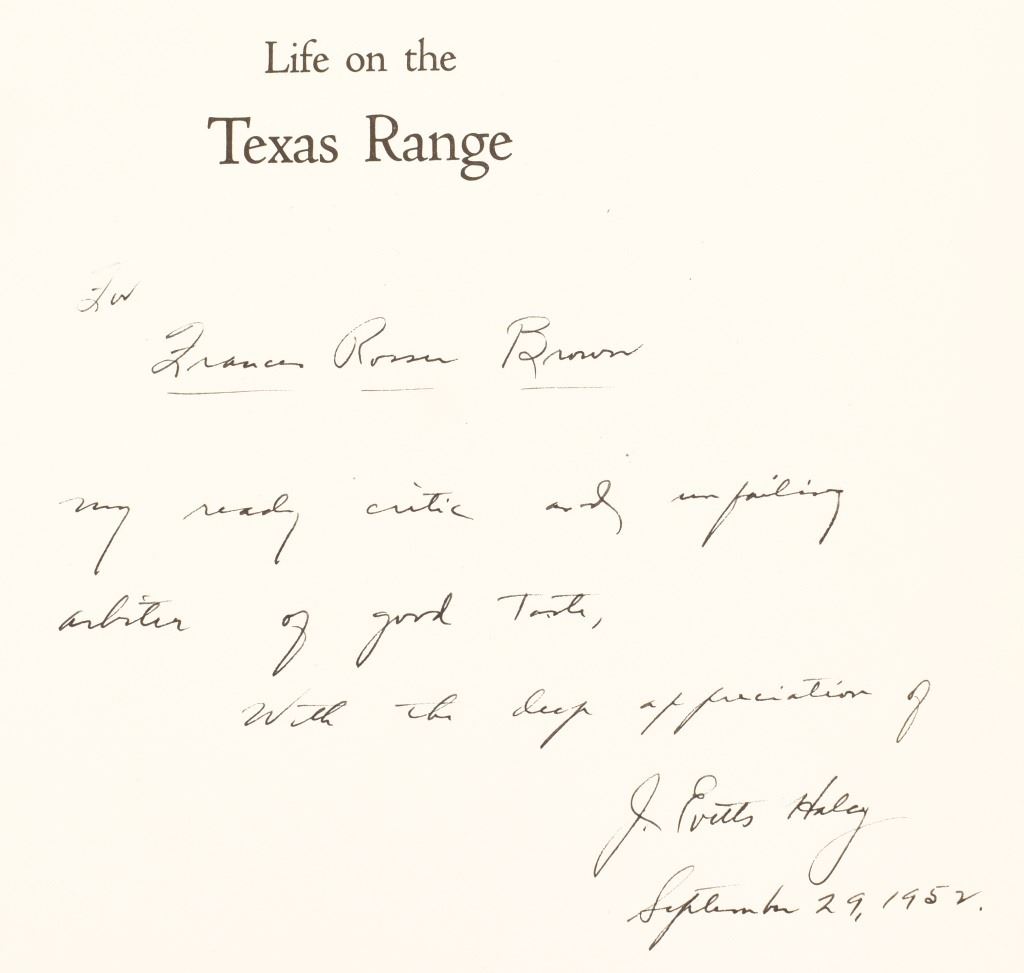 Life on the
Texas Range
For
Frances Rosser Brown
my ready critic and unfailing
arbiter of good taste,
With the deep appreciation of
J. Evetts Haley
September 29, 1952.